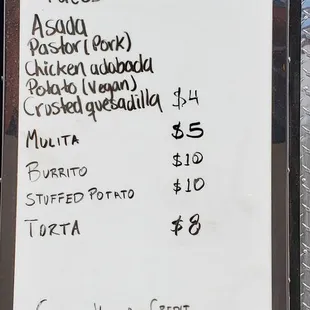 Tacos
Asada
Pastor (Pork)
Chicken adobada
Potato (Vegan)
Crusted quesadilla $4
MULITA $5
BURRITO $10
STUFFED POTATO $10
TORTA $8
CREDIT